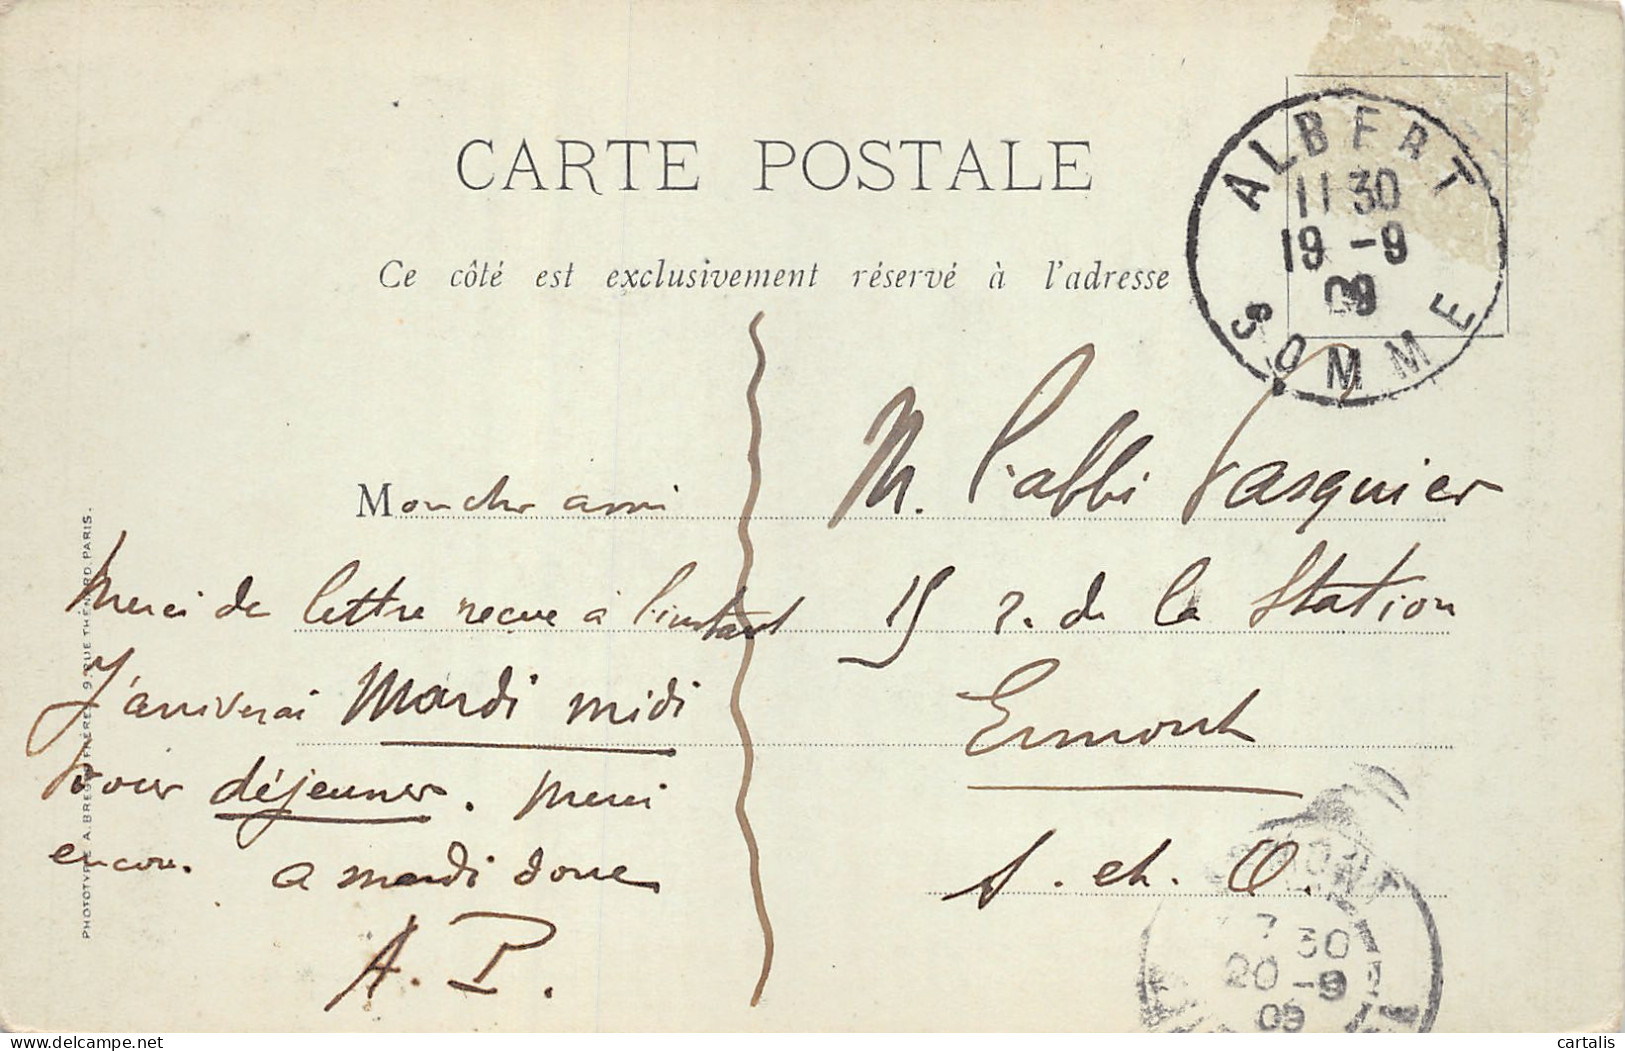 CARTE POSTALE
Ce côté est exclusivement réservé à l'adresse
ALBERT
11 30
19 -9
09
SOMME
Mon cher ami
Merci de lettre reçue à l'instant
J'arriverai Mardi midi
pour déjeuner. Merci
encore. A mardi donc
A. P.
M. l'abbé Pasquier
15 r. de la Station
Ermont
S. et. O.
7 30
20 -9
09
PHOTOTYPIE A. BREGER FRÈRES, 9, RUE THÉNARD, PARIS.
cartalis